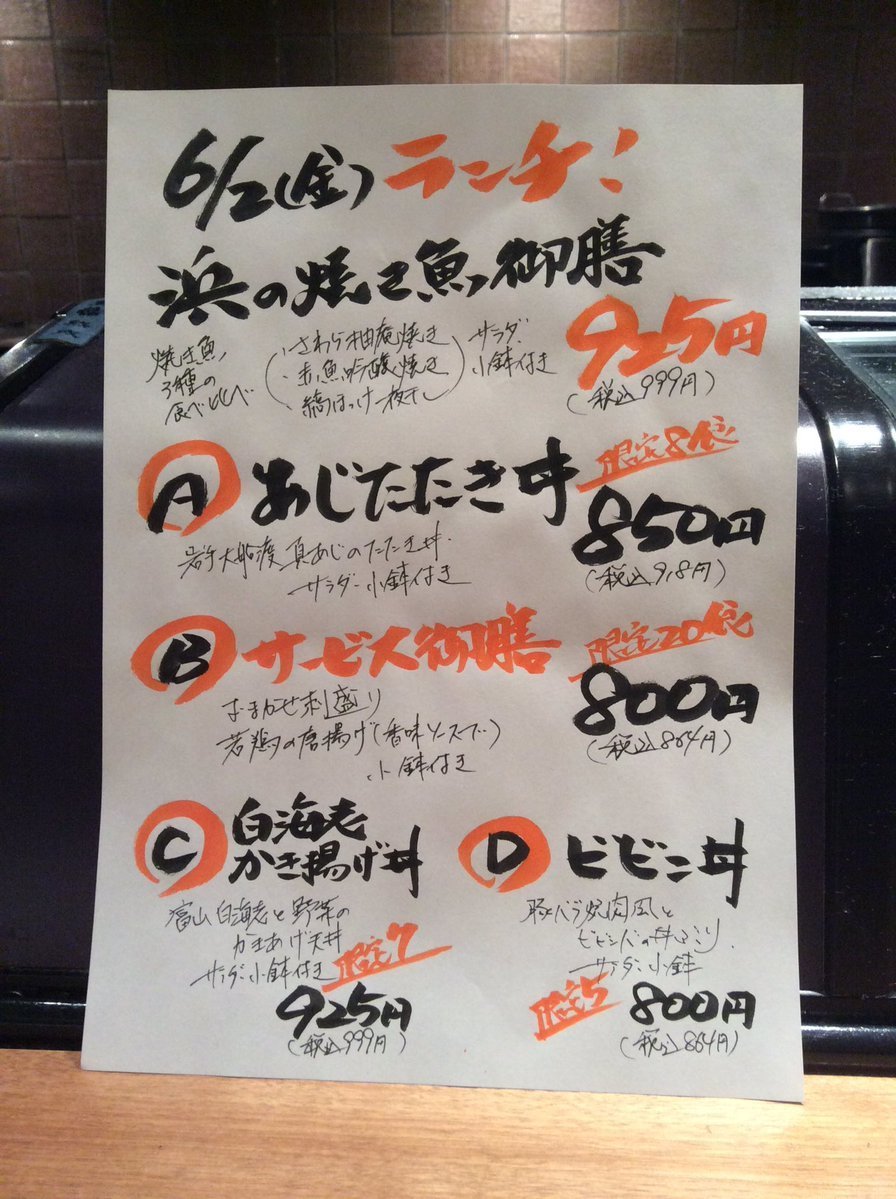 6/2(金) ランチ!
浜の焼き魚御膳
焼き魚
3種の
食べ比べ
・さわら柚庵焼き
・赤魚吟醸焼き
・縞ほっけ一夜干し
サラダ、
小鉢付き
925円
(税込999円)
A あじたたき丼
限定8食
850円
(税込918円)
岩手大船渡 真あじのたたき丼
サラダ・小鉢付き
B サービス御膳
限定20食
800円
(税込864円)
おまかせ刺盛り
若鶏の唐揚げ(香味ソースで)
小鉢付き
C 白海老
かき揚げ丼
富山白海老と野菜の
かきあげ天丼
サラダ・小鉢付き
限定7
925円
(税込999円)
D ビビン丼
豚バラ焼肉風と
ビビンバの丼
サラダ・小鉢
限定5
800円
(税込864円)